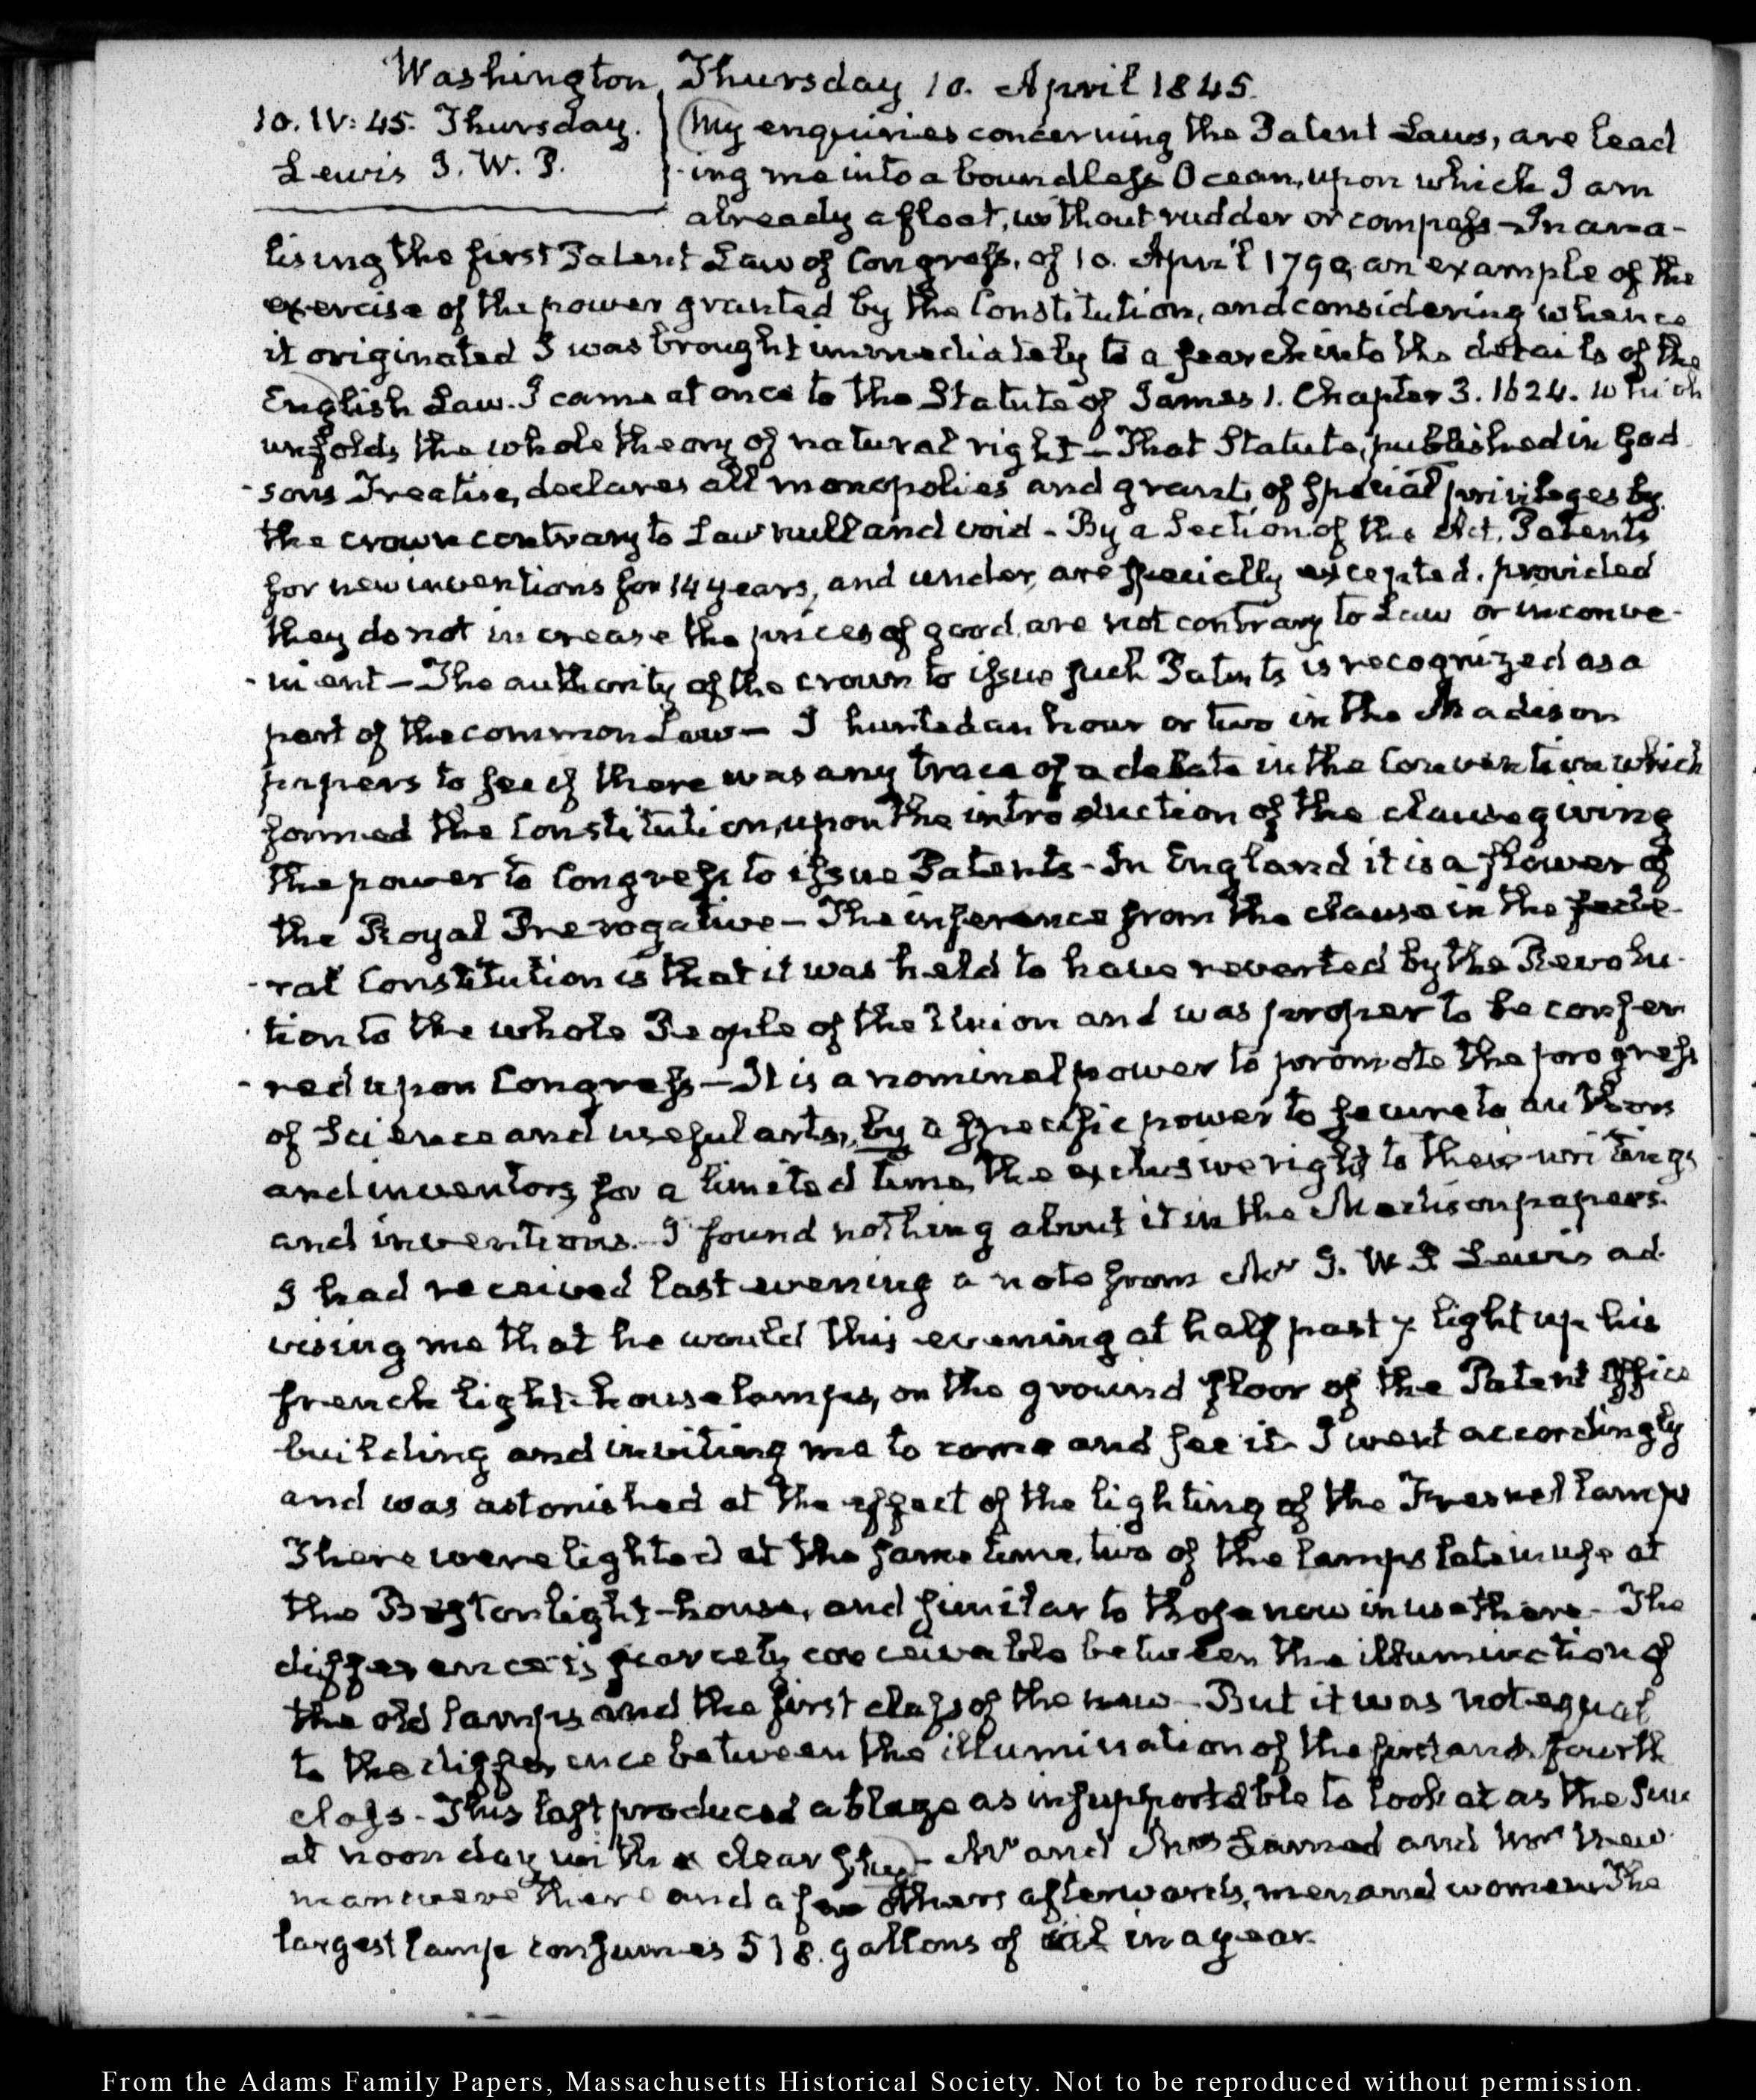 Washington, Thursday 10. April 1845.
10. IV: 45. Thursday.
Lewis I. W. P.
My enquiries concerning the Patent Laws, are lead
-ing me into a boundless Ocean, upon which I am
already afloat, without rudder or compass – In ana-
lising the first Patent Law of Congress, of 10. April 1790, an example of the
exercise of the power granted by the Constitution, and considering whence
it originated I was brought immediately to a search into the details of the
English Law. I came at once to the Statute of James 1. Chapter 3. 1624. which
unfolds the whole theory of natural right – That Statute, published in God
-sons Treatise, declares all monopolies and grants of special privileges by
the crown contrary to Law null and void – By a Section of the Act, Patents
for new inventions for 14 years, and under, are specially excepted, provided
they do not increase the prices of good, are not contrary to Law or inconve-
-nient – The authority of the crown to issue such Patents is recognized as a
part of the common Law – I hunted an hour or two in the Madison
papers to see if there was any trace of a debate in the Convention which
formed the Constitution, upon the introduction of the clause giving
the power to Congress to issue Patents – In England it is a flower of
the Royal Prerogative – The inference from the clause in the fede-
-ral Constitution is that it was held to have reverted by the Revolu-
-tion to the whole People of the Union and was proper to be confer
-red upon Congress – It is a nominal power to promote the progress
of Science and useful arts, by a specific power to secure to authors
and inventors for a limited time, the exclusive right to their writings
and inventions. I found nothing about it in the Madison papers.
I had received last evening a note from Mr I. W. P. Lewis ad-
vising me that he would this evening at half past 7 light up his
french light-house lamps, on the ground floor of the Patent Office
building and inviting me to come and see it. I went accordingly
and was astonished at the effect of the lighting of the Fresnel lamps
There were lighted at the same time, two of the lamps late in use at
the Boston light-house, and similar to those now in use there – The
difference is scarcely conceivable between the illumination of
the old lamps and the first class of the new – But it was not equal
to the difference between the illumination of the first and fourth
class – This last produced a blaze as insupportable to look at as the Sun
at noon day in the clear sky – Mr and Mrs and Mr New
man were there and a few others afterwards, men and women. The
largest lamp consumes 518. gallons of oil in a year.
From the Adams Family Papers, Massachusetts Historical Society. Not to be reproduced without permission.